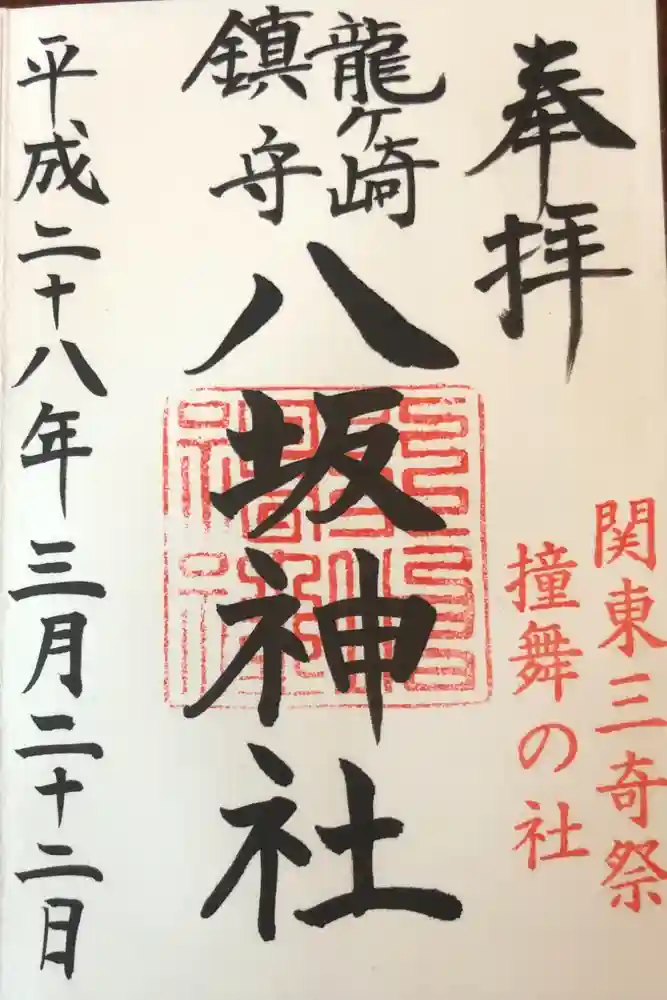 奉拝
関東三奇祭
撞舞の社
龍ケ崎
鎮守
八坂神社
平成二十八年三月二十二日